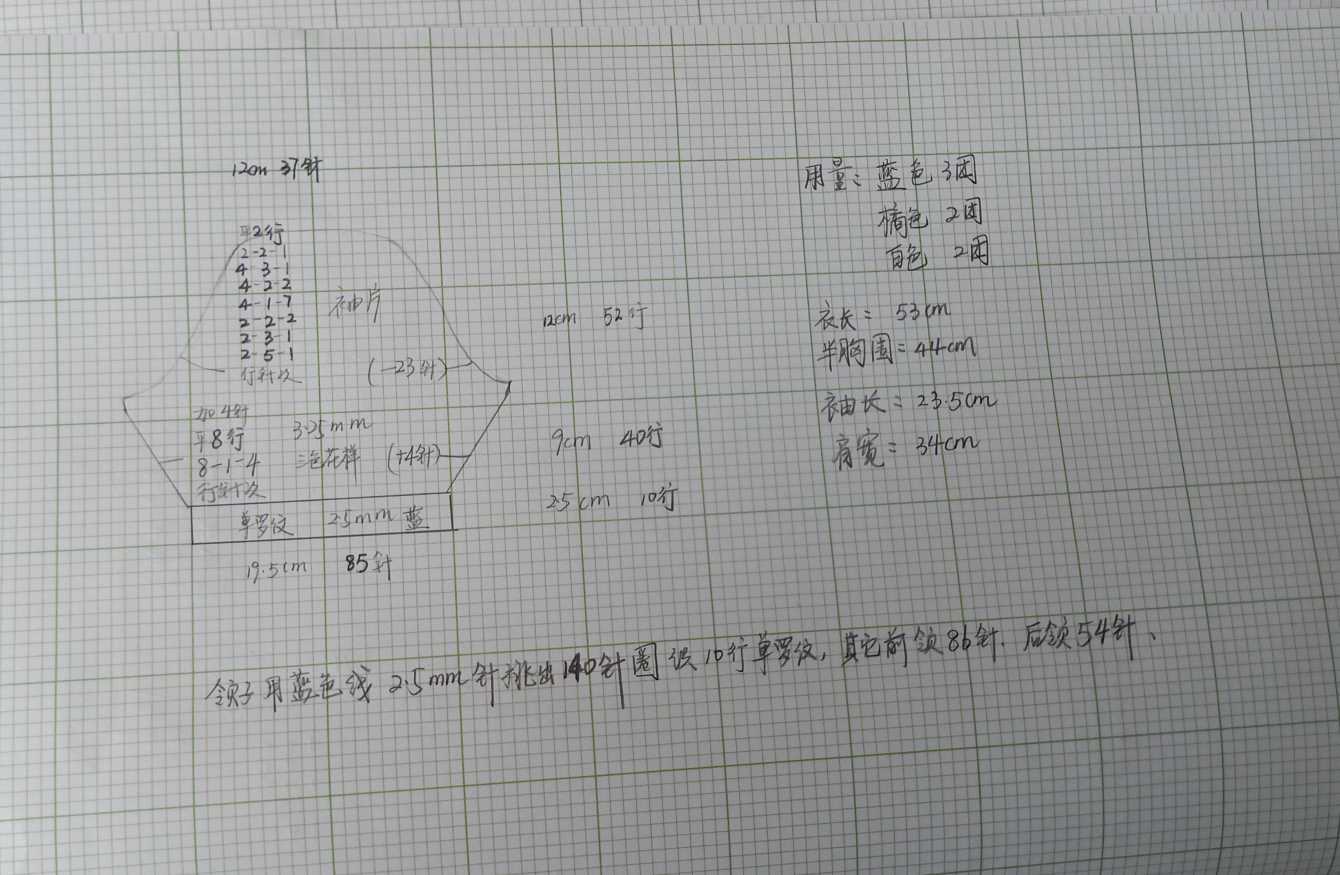 12cm 37针
平2行
2-2-1
4-3-1
4-2-2
4-1-7
2-2-2
2-3-1
2-5-1
行针次
袖片
(-23针)
12cm 52行
加4针
平8行
8-1-4
行针次
3.25mm
三色花样 (+4针)
9cm 40行
单罗纹 2.5mm 蓝
2.5cm 10行
19.5cm 85针
用量: 蓝色 3团
橘色 2团
白色 2团
衣长= 53cm
半胸围=44cm
袖长=23.5cm
肩宽=34cm
领子用蓝色线 2.5mm针挑出140针圈织10行单罗纹,其它前领86针、后领54针、